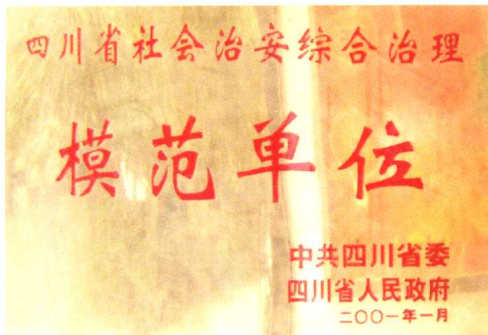 四川省社会治安综合治理
模范单位
中共四川省委
四川省人民政府
二〇〇一年一月